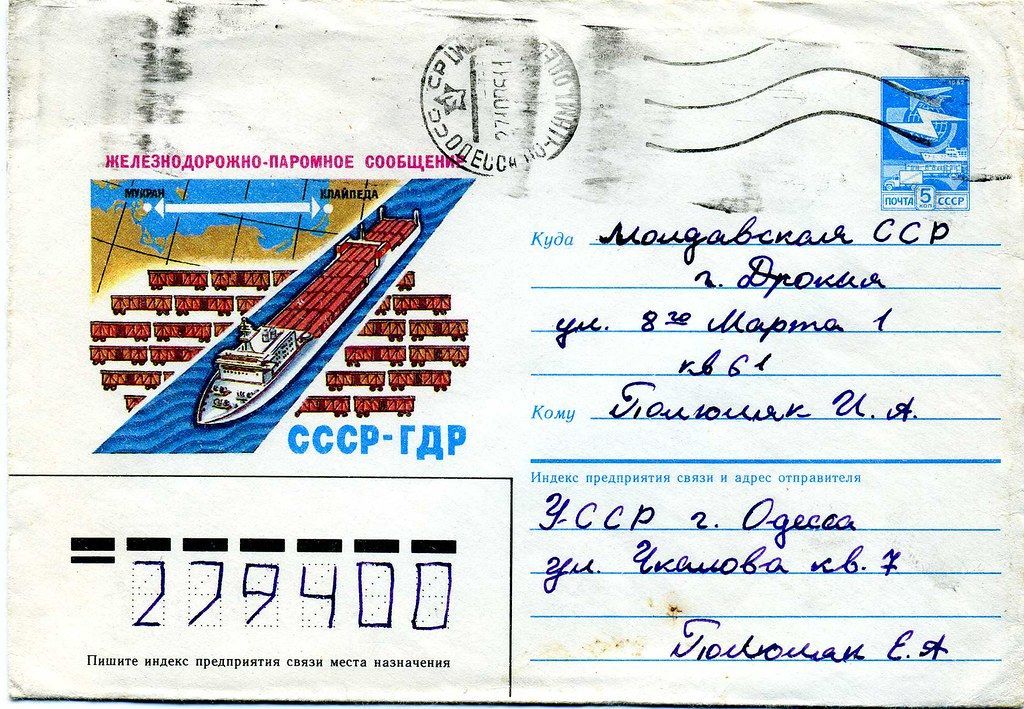 ЖЕЛЕЗНОДОРОЖНО-ПАРОМНОЕ СООБЩЕНИЕ
МУКРАН
КЛАЙПЕДА
СССР-ГДР
СССР
ОДЕССА
ПОЧТА 5 коп СССР
Куда Молдавская ССР
г. Дрокия
ул. 8го Марта 1
кв 61
Кому И. А.
Индекс предприятия связи и адрес отправителя
УССР г. Одесса
ул. Чкалова кв. 7
Е. А
279400
Пишите индекс предприятия связи места назначения